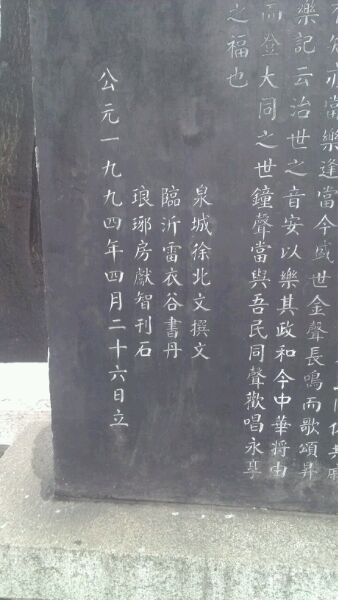 亦當樂逢當今盛世金聲長鳴而歌頌昇
樂記云治世之音安以樂其政和今中華將由
而登大同之世鐘聲當與吾民同聲歡唱永享
之福也
泉城徐北文撰文
臨沂雷衣谷書丹
琅琊房獻智刊石
公元一九九四年四月二十六日立